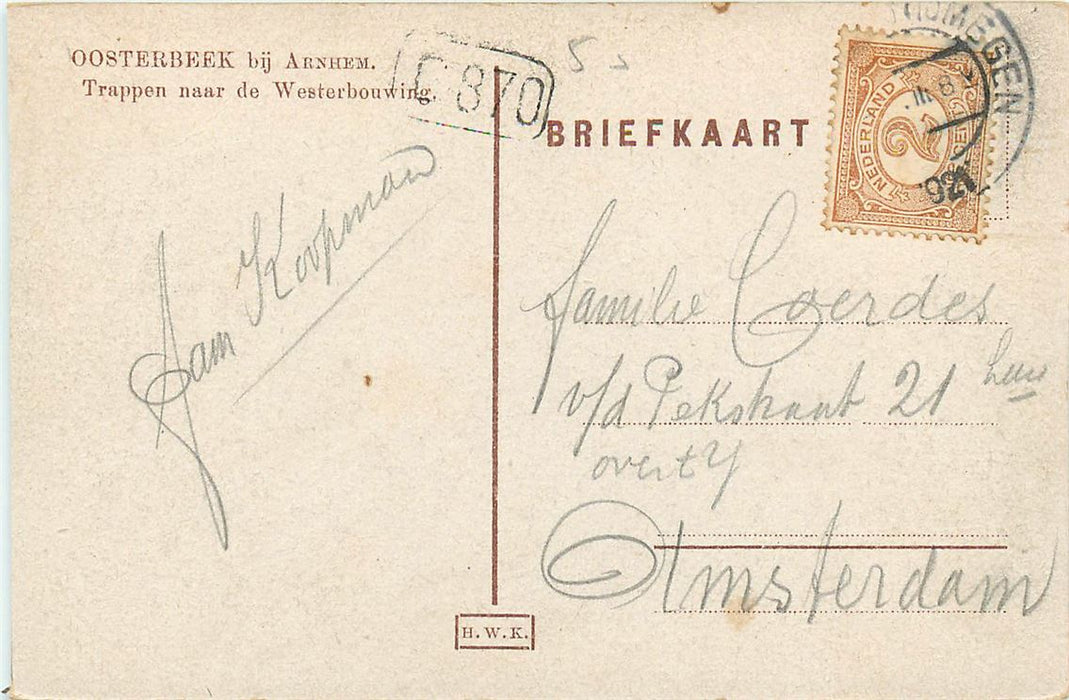 OOSTERBEEK bij ARNHEM.
Trappen naar de Westerbouwing.
C 870
BRIEFKAART
NEDERLAND
2
NIJMEGEN
Koopman
familie Coerdes
v/d Pekstraat 21 huis
over t Y
Amsterdam
H. W. K.